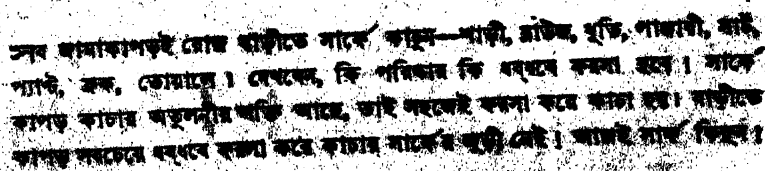 সব জামাকাপড়ই রোজ বাড়ীতে সার্ফে কাচুন—শাড়ী, ব্লাউজ, ধুতি, পাঞ্জাবী, সার্ট,
প্যান্ট, ফ্রক, তোয়ালে। দেখবেন, কি পরিষ্কার কি ধব্‌ধবে ফরসা হবে। সার্ফে
কাপড় কাচার অতুলনীয় শক্তি আছে, তাই সহজেই ফরসা করে কাচা হয়। বাড়ীতে
কাপড় সবচেয়ে ধব্‌ধবে ফরসা করে কাচায় সার্ফের জুড়ী নেই। আজই সার্ফ কিনুন।